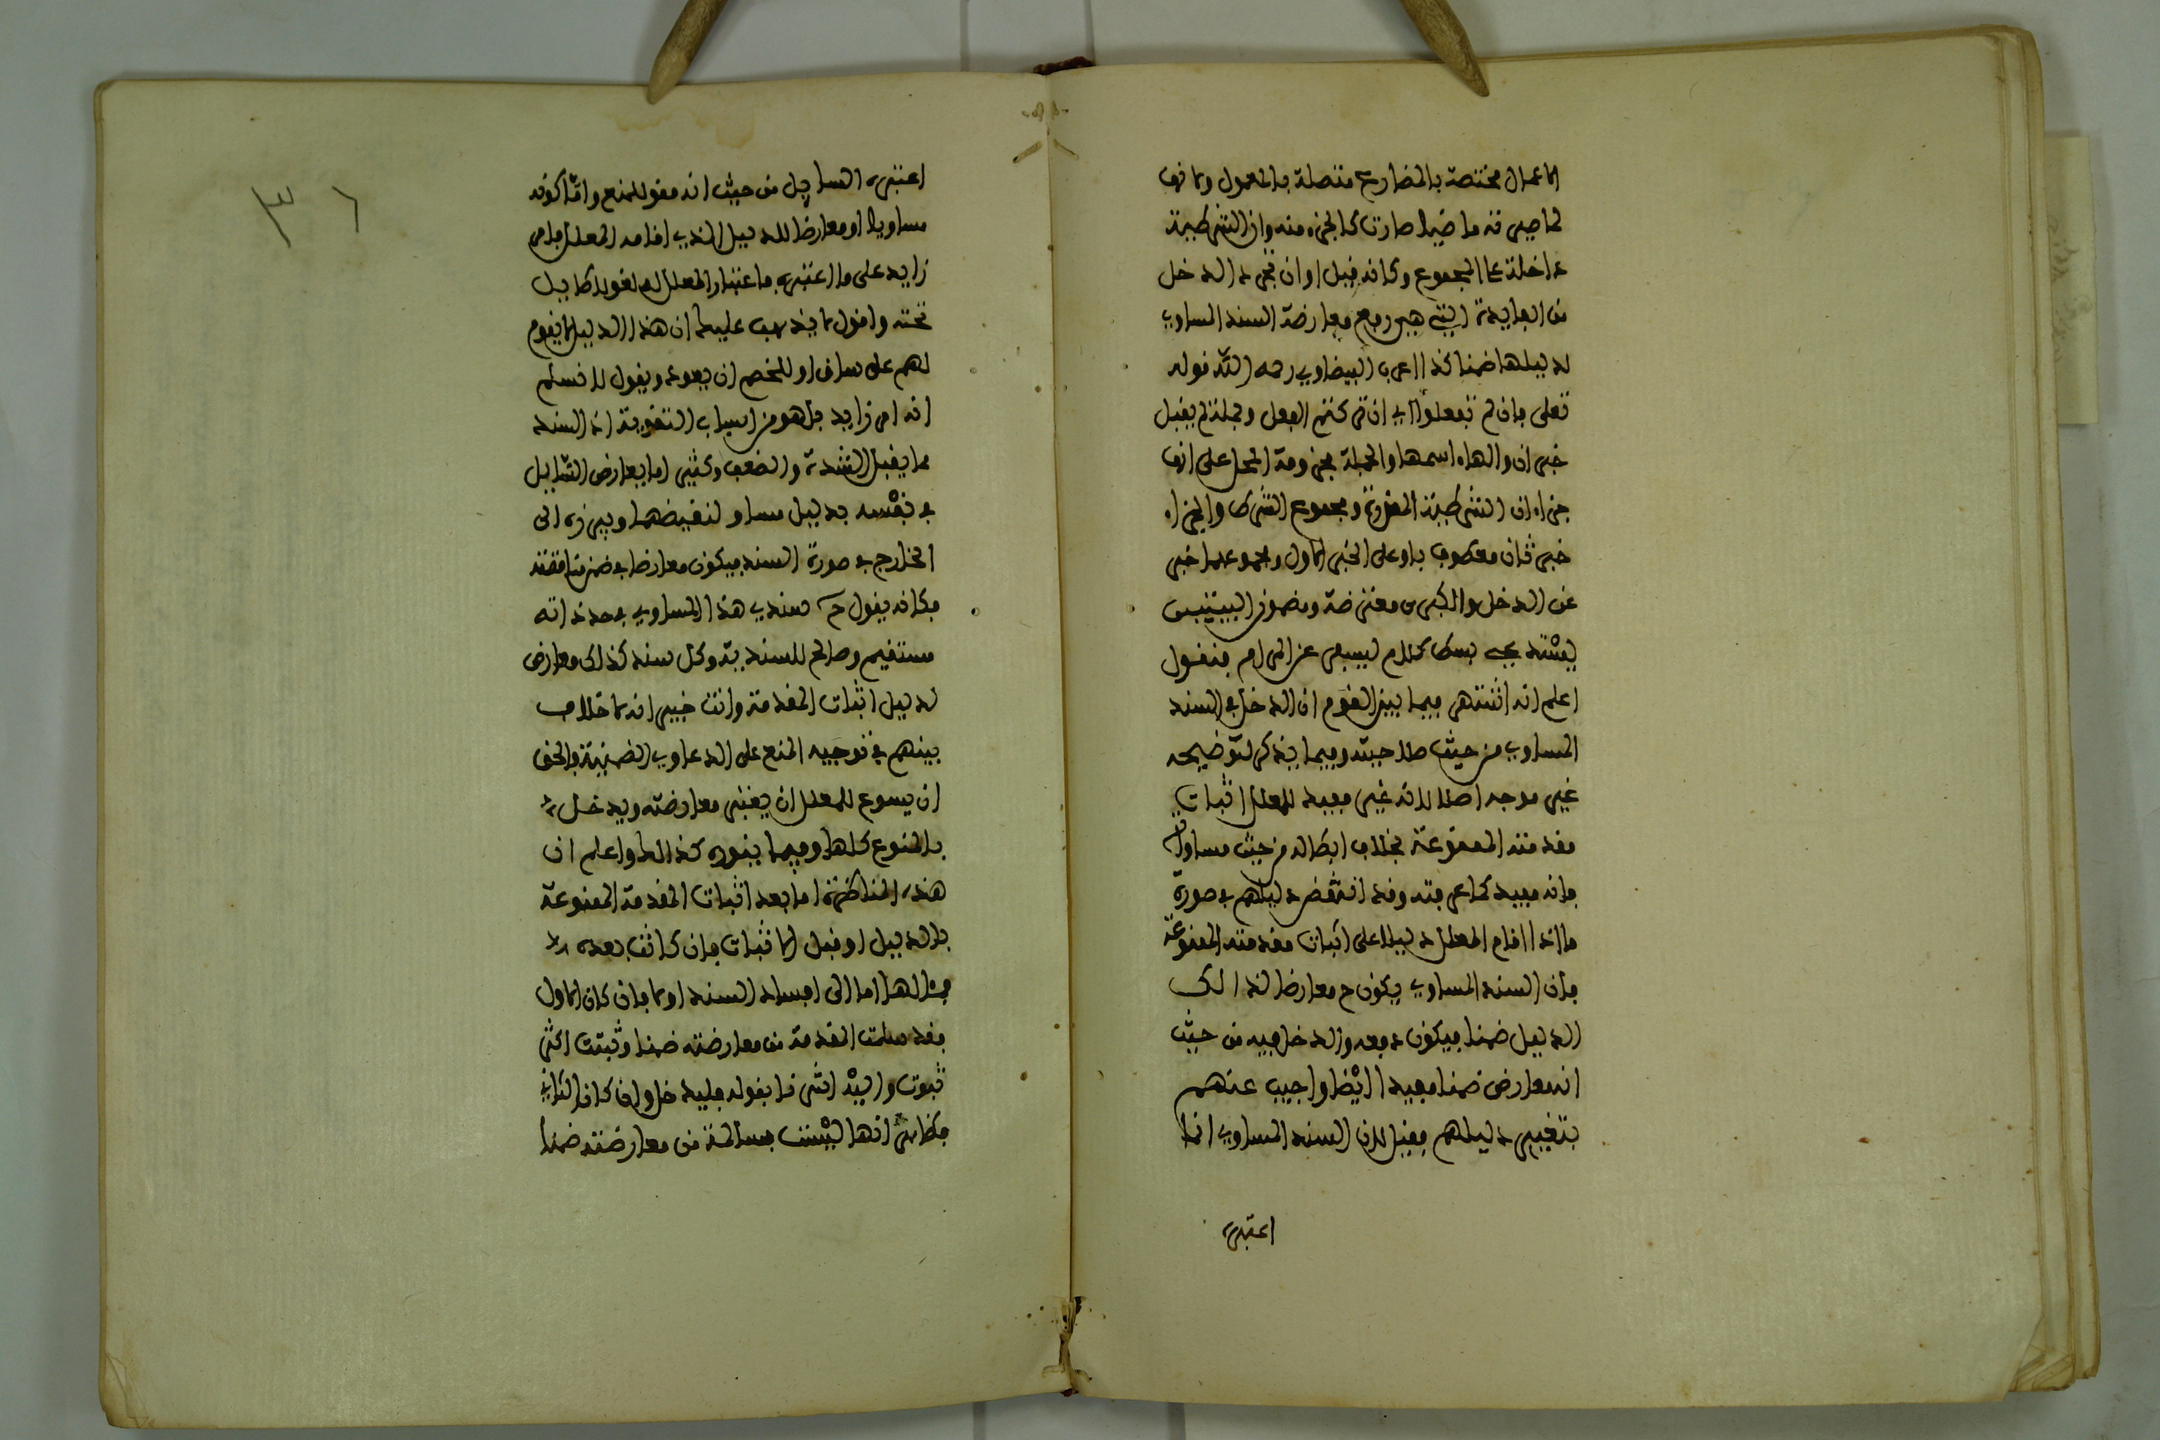 الاعمال مختصة بالمضارع متصلة بالمعمول ولانها
لما صيرته ماضيا صارت كالجزء منه وان الشرطية
داخلة على المجموع وكانه قيل او ان تجرد الدخل
من الفايدة التي هي رفع معارضة السند المساوي
لدليلها ضمنا كذا اعرب البيضاوي رحمه الله قوله
تعلى فان لم تفعلوا اي ان تركتم الفعل وجملة لم يفبل
خبر ان والهاء اسمها والجملة مجزومة المحل على انها
جزاء ان الشرطية المقرونة ومجموع الشرط والجزاء
خبر ثان معطوف باو على الخبر الاول ومجموعهما خبر
عن الدخل والكبرى معترضة ومضمون البيتين
يستدعي بسط كلام ليسفر عن المرام فنقول
اعلم انه اشتهر فيما بين القوم ان الدخل في السند
المساوي من حيث صلاحيته وفيما يذكر لتوضيحه
غير موجه اصلا لانه غير مفيد للمعلل اثبات
مقدمته الممنوعة بخلاف ابطاله من حيث مساواته
فانه مفيد كما عرفته وقد انتقض دليلهم في صورة
ما اذا اقام المعلل دليلا على اثبات مقدمته الممنوعة
فان السند المساوي يكون ح معارضا لذالك
الدليل ضمنا فيكون دفعه والدخل فيه من حيث
انه معارض ضمنا مفيدا ايضا واجيب عنهم
بتغيير دليلهم فقيل لان السند المساوي انما
اعتبره
٣٦
اعتبره السايل من حيث انه مقو للمنع واما كونه
مساويا او معارضا للدليل الذي اقامه المعلل فامر
زايد على ما اعتبره فاعتبار المعلل له لغو لا طايل
تحته واقول لا يذهب عليك ان هذا الدليل لا يقوم
لهم على ساق اذ للخصم ان يعود ويقول لا نسلم
انه امر زايد بل هو من اسباب التقوية اذ السند
مما يقبل الشدة والضعف وكثيرا ما يعارض السايل
في نفسه بدليل مساو لنقيضها ويبرزه الى
الخارج في صورة السند فيكون معارضا في ضمن مناقضته
فكانه يقول ح سندي هذا المساوي في حد ذاته
مستقيم وصالح للسندية وكل سند كذلك معارض
لدليل اثبات المقدمة وانت خبير انه لا خلاف
بينهم في توجيه المنع على الدعاوي الضمنية فالحق
ان يسوغ للمعلل ان يعتبر معارضته ويدخل
بالمنوع كلها وفيما ينوره كذالك واعلم ان
هذه المناظرة اما بعد اثبات المقدمة الممنوعة
بالدليل او قبل الاثبات فان كانت بعده
فمئالها اما الى افساد السند او لا فان كان الاول
فقد سلمت المقدمة من معارضته ضمنا وثبتت اكثر
ثبوت واليه اشرنا بقولنا فليدخل وان كان الثاني
فظاهر انها ليست بسالمة من معارضته ضمنا